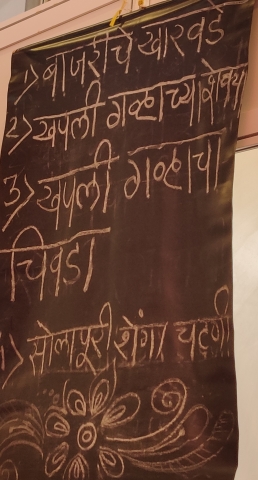 १) बाजरीचे खारवडे
२) खपली गव्हाच्या शेवया
३) खपली गव्हाचा
चिवडा
४) सोलापूरी शेंगा चटणी